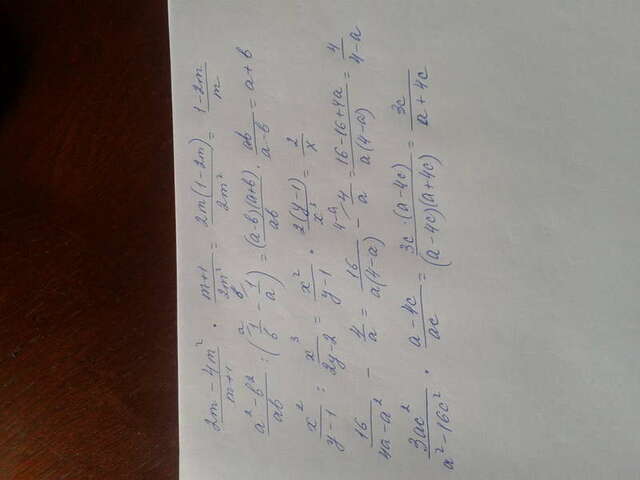 (2m - 4m²)/(m+1) · (m+1)/(2m²) = 2m(1-2m)/(2m²) = (1-2m)/m
(a² - b²)/(ab) : (1/b - 1/a) = (a-b)(a+b)/(ab) · ab/(a-b) = a+b
x²/(y-1) : x³/(2y-2) = x²/(y-1) · 2(y-1)/x³ = 2/x
16/(4a-a²) - 4/a = 16/(a(4-a)) - 4/a = (16-16+4a)/(a(4-a)) = 4/(4-a)
3ac²/(a²-16c²) · (a-4c)/(ac) = 3c·(a-4c)/((a-4c)(a+4c)) = 3c/(a+4c)